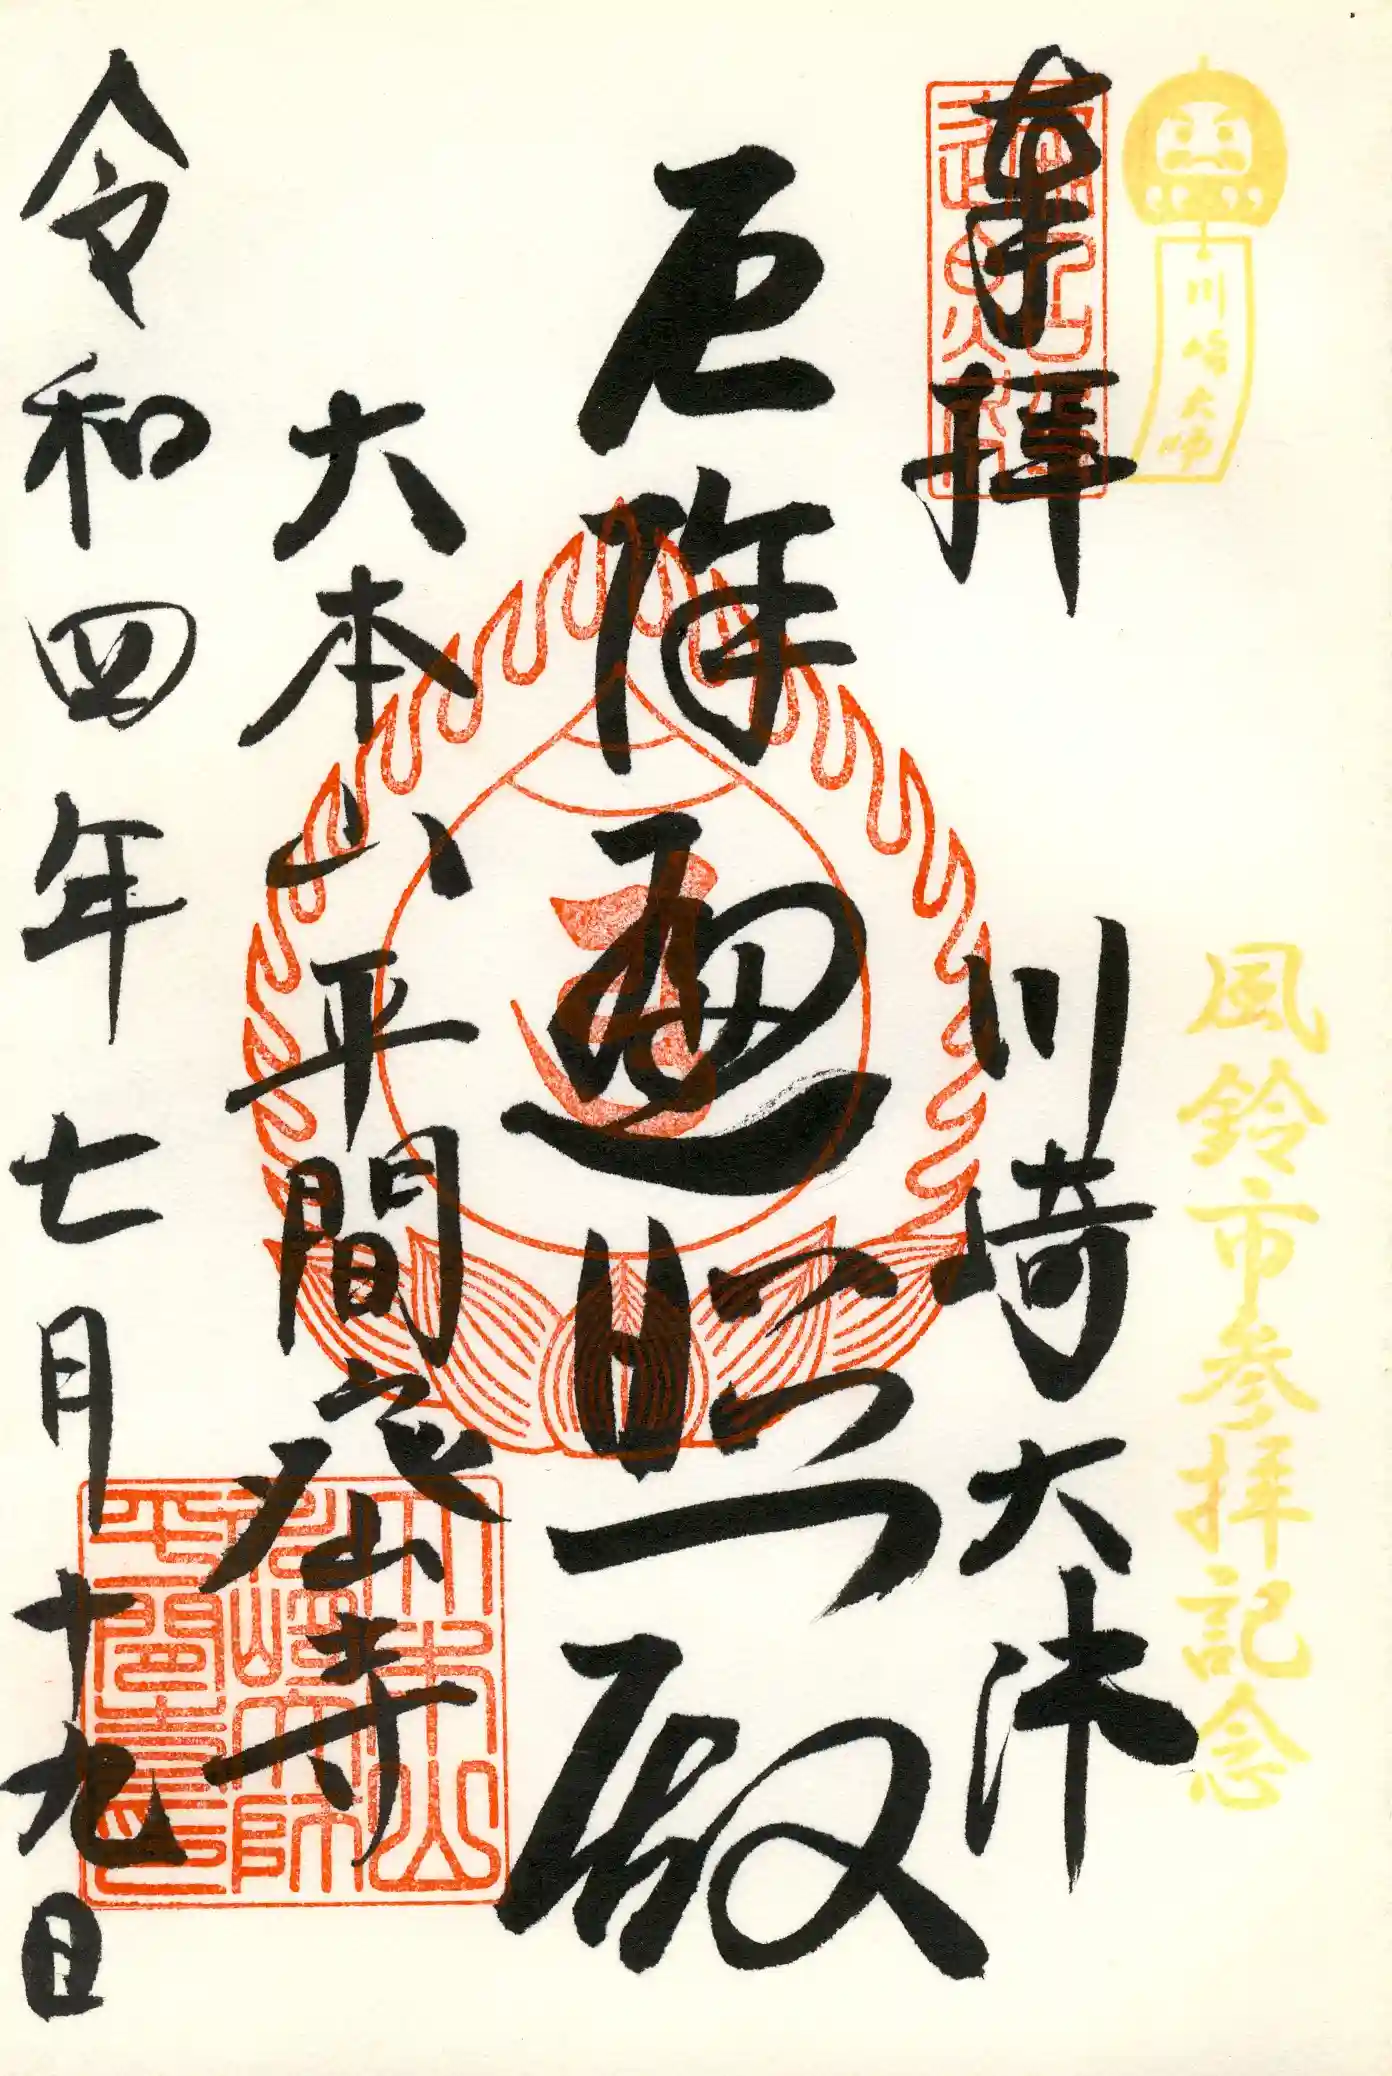 川崎大師
風鈴市参拝記念
奉拝
川崎大师
厄除遍照殿
大本山平間寺
令和四年七月十九日
大本山
川崎大師
平間寺印